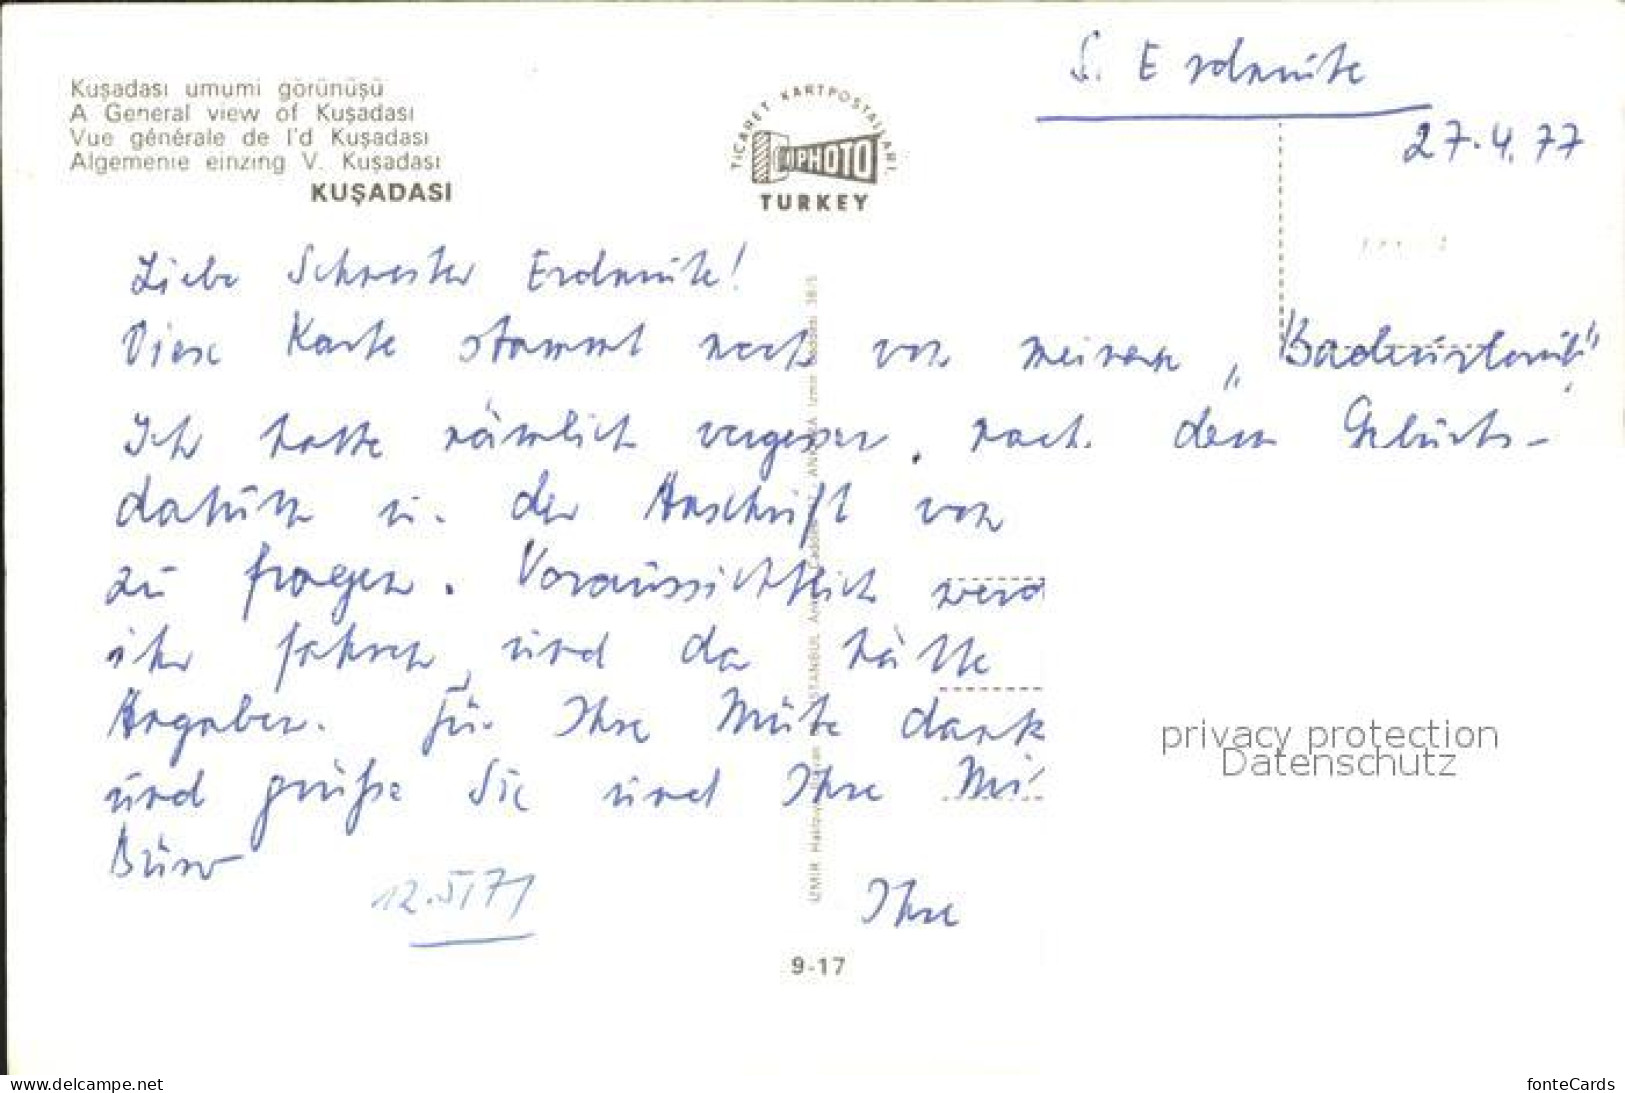 S. Erdmute
27.4.77
Kuşadası umumi görünüşü
A General view of Kuşadası
Vue générale de l'd Kuşadası
Algemenie einzing V. Kuşadası
KUŞADASI
TİCARET KARTPOSTALLARI
PHOTO
TURKEY
Liebe Schwester Erdmute!
Diese Karte stammt noch von meinem „Badeurlaub"
Ich hatte nämlich vergessen, nach dem Geburts-
datum u. der Anschrift von
zu fragen. Voraussichtlich werd
ihr fahren, und da hätte
Angaben. Für Ihre Mühe dank
und grüße Sie und Ihre Mi
Büro
12.5.77
Ihre
9-17
privacy protection
Datenschutz
www.delcampe.net
fonteCards